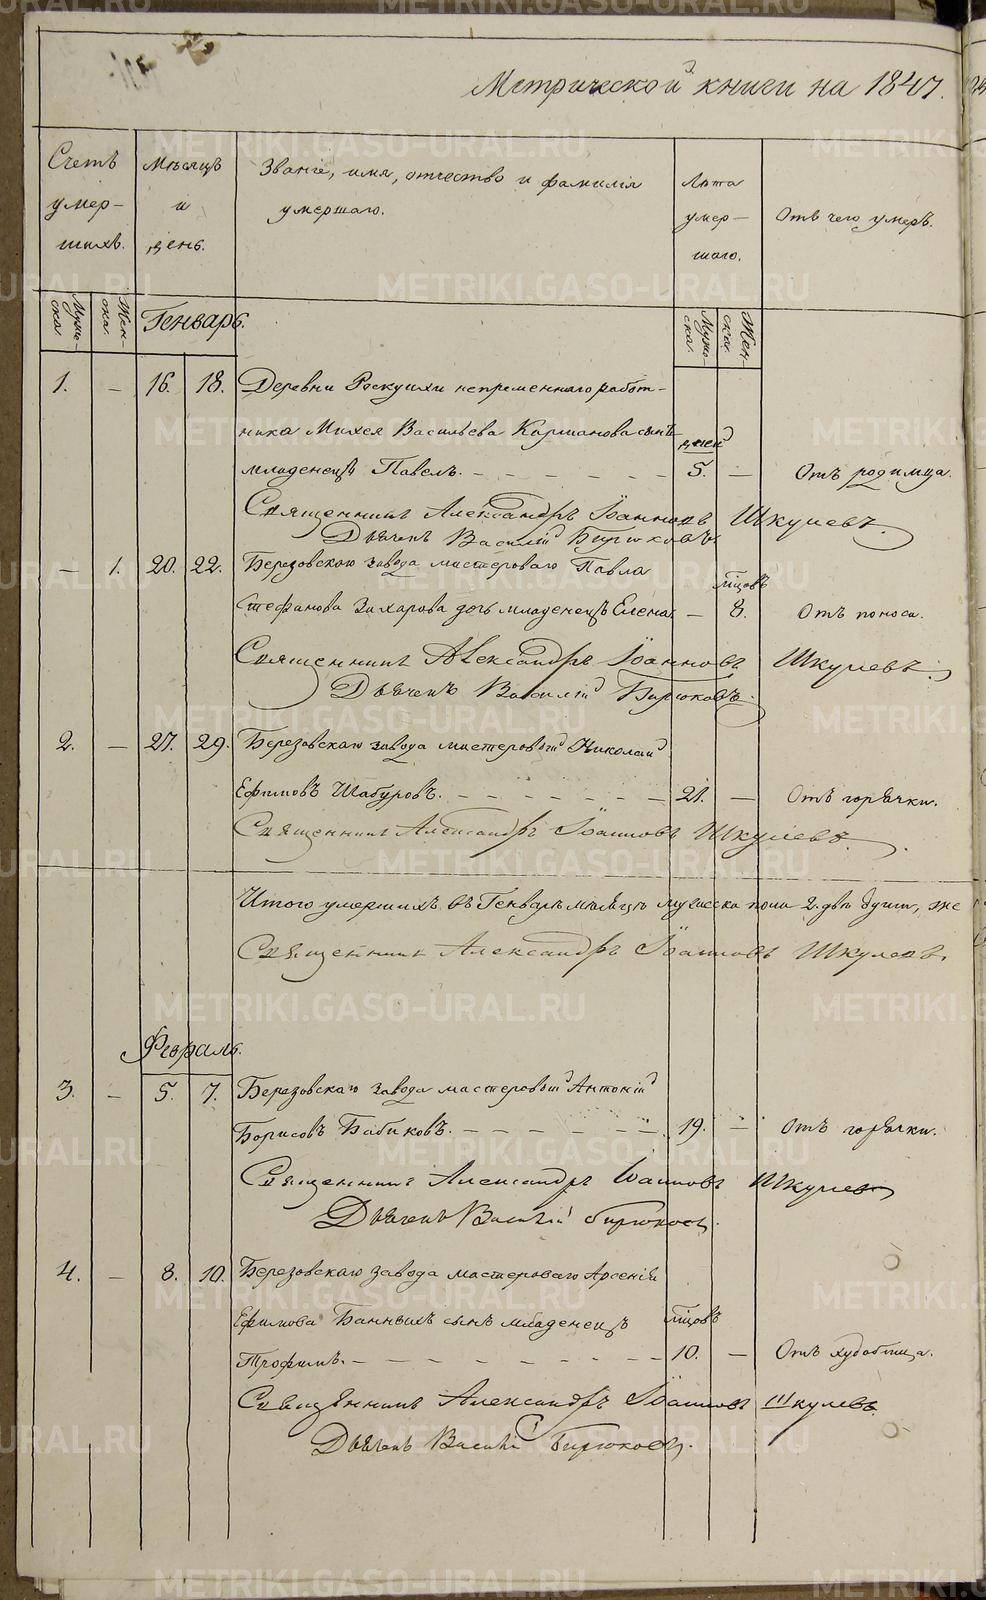 Метрической книги на 1847.
Счетъ умер- шихъ.
Мѣсяцъ и день.
Званіе, имя, отчество и фамилія умершаго.
Лѣта умер- шаго.
Отъ чего умеръ.
Муже- ска.
Жен- ска.
Генварь.
Муже- ска.
Жен- ска.
1. — 16. 18. Деревни непременнаго работ-
ника Михея Васильева Карманова сынъ дней
младенецъ Павелъ. 5. — Отъ родимца.
Священникъ Александръ Іоанновъ Шкулевъ.
Дьячекъ Василій Бирюковъ.
— 1. 20. 22. Березовскаго завода мастероваго Павла мѣсяцовъ
Стефанова Захарова дочь младенецъ Елена — 8. Отъ поноса.
Священникъ Александръ Іоанновъ Шкулевъ.
Дьячекъ Василій Бирюковъ.
2. — 27. 29. Березовскаго завода мастеровой Николай
Ефимовъ Шабуровъ. 21. — Отъ горячки.
Священникъ Александръ Іоанновъ Шкулевъ.
Итого умершихъ въ Генварѣ мѣсяцѣ мужеска пола 2. двѣ души, же
Священникъ Александръ Іоанновъ Шкулевъ.
Февраль.
3. — 5. 7. Березовскаго завода мастеровой Антоній
Борисовъ Бабиковъ. 19. — Отъ горячки.
Священникъ Александръ Іоанновъ Шкулевъ
Дьячекъ Василій Бирюковъ.
4. — 8. 10. Березовскаго завода мастероваго Арсенія
Ефимова Банныхъ сынъ младенецъ мѣсяцовъ
Трофимъ. 10. — Отъ худобища.
Священникъ Александръ Іоанновъ Шкулевъ.
Дьячекъ Василій Бирюковъ.
METRIKI.GASO-URAL.RU